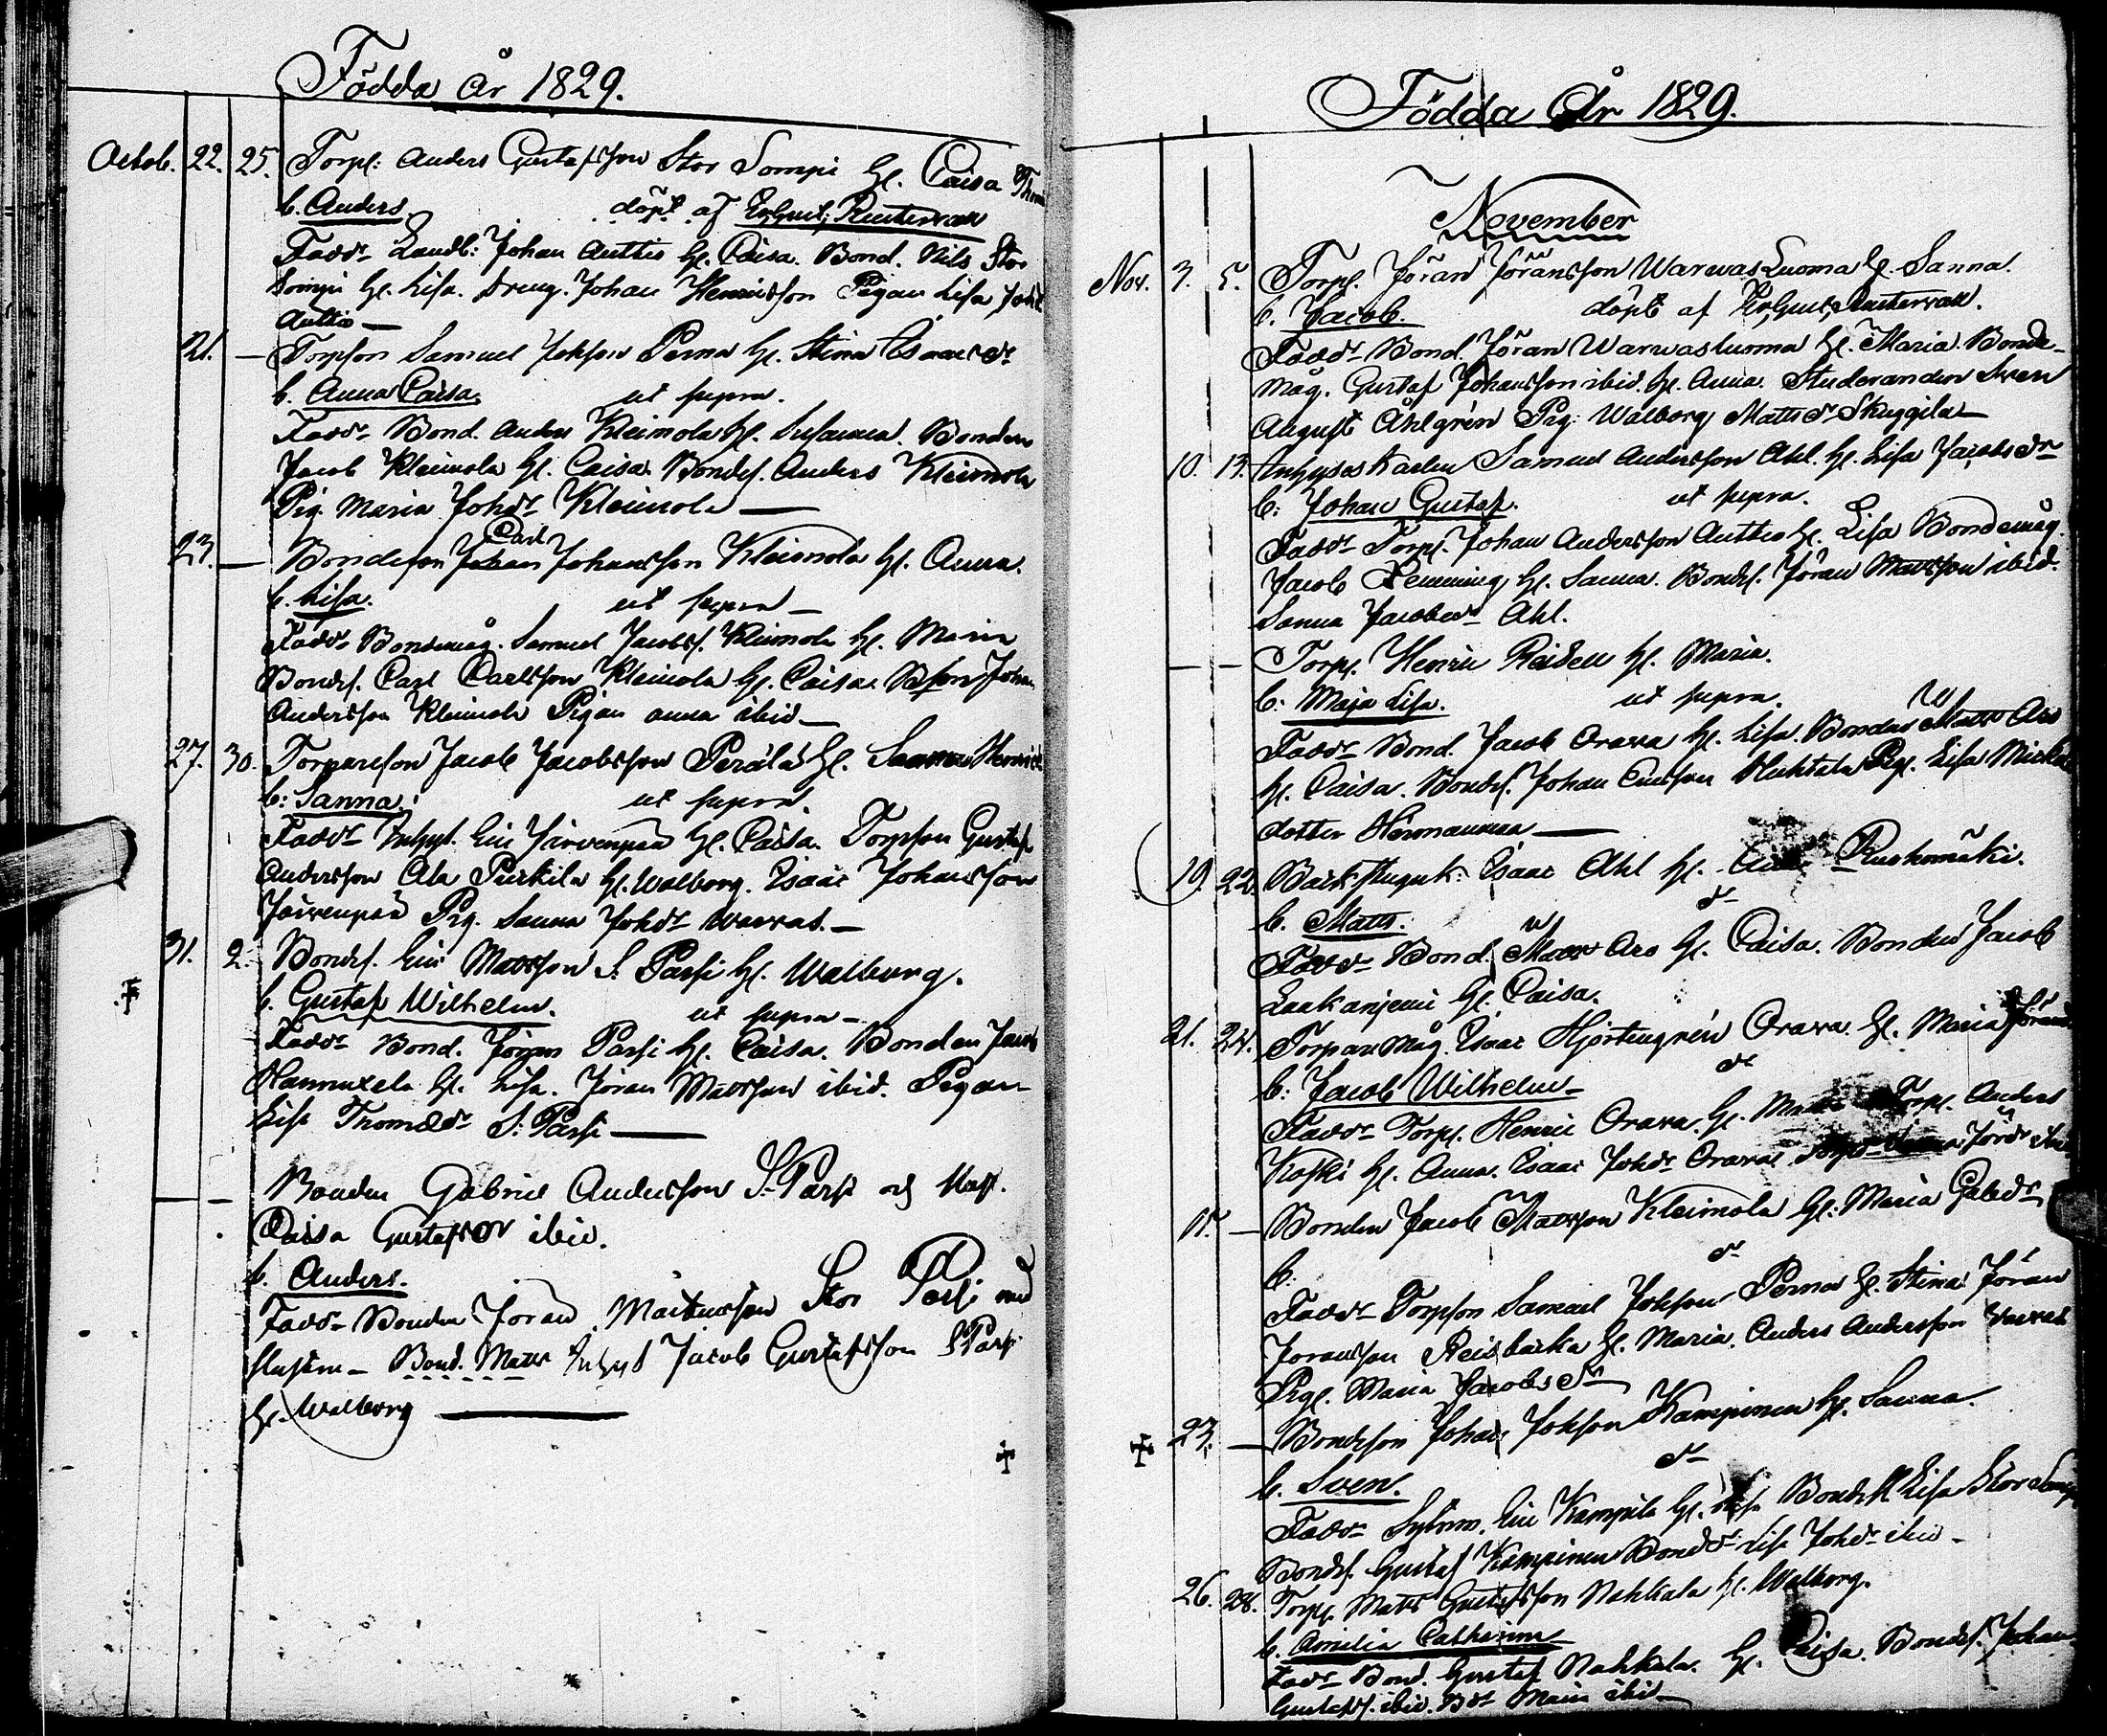 Födda år 1829.
Octob. 22. 25. Torp: Anders Gustafsson Stor Sompi H. Caisa
b. Anders. döpt af
Fadd. Landb: Johan Anttio H. Caisa. Bond. Nils Stor
Sompi H. Lisa. Dreng. Johan Henricsson Pigan Lisa
Anttio —
21. — Torpson Samuel Johsson Perna H. Stina Esaacsdr
b. Anna Caisa. ut supra.
Fadd. Bond. Anders Kleimola H. Susanna. Bonden
Jacob Kleimola H. Caisa. Bondes. Anders Kleimola
Pig. Maria Johdr Kleimola —
23. — Bondeson Johan Carl Johansson Kleimola H. Anna.
b. Lisa. ut supra —
Fadd. Bondemåg. Samuel Jacobss. Kleimola H. Maria
Bondes. Carl Carlsson Kleimola H. Caisa. Bdson Johan
Andersson Kleimola Pigan Anna ibid —
27. 30. Torpareson Jacob Jacobsson Perälä H. Sanna
b: Sanna. ut supra.
Fadd. Inhys. Eric Järvenpää H. Caisa. Torpson Gustaf
Andersson Ala Purkila H. Walborg. Esaac Johansson
Järvenpää Pig. Sanna Johdr Warvas. —
31. 2. Bondes. Eric Mattsson S. Passi H. Walborg.
b. Gustaf Wilhelm. ut supra —
Fadd. Bond. Jöran Passi H. Caisa. Bonden Jacob
Hannuxela H. Lisa. Jöran Mattsson ibid. Pigan
Lisa Thomædr S: Passi —
— — Bonden Gabriel Andersson S. Passi och Hust.
Caisa Gustafsdr ibid.
b. Anders.
Fadd. Bonden Jöran Mårtensson Stor Passi med
hustru — Bond. Matts Inhys Jacob Gustafsson S Passi
H. Walborg —
Födda År 1829.
November
Nov. 3. 5. Torp. Jöran Jöransson Warwas Luoma H. Sanna.
b. Jacob. döpt af
Fadd. Bond. Jöran Warwasluoma H. Maria. Bonde-
måg. Gustaf Johansson ibid. H. Anna. Studeranden Sven
August Åhlgrén Pig: Walborg Mattsdr Skuggila —
10. 13. Inhyses Karlen Samuel Andersson Ahl. H. Lisa Jacobsdr
b: Johan Gustaf. ut supra.
Fadd. Torp. Johan Andersson Anttio H. Lisa Bondemåg.
Jacob Remming H. Sanna. Bondes. Jöran Mattsson ibid.
Sanna Jacobsdr Ahl.
— — Torp. Henric Reiden H. Maria.
b: Maja Lisa. ut supra.
Fadd. Bond. Jacob Orava H. Lisa. Bonden Matts Aro
H. Caisa. Bondes. Johan Ericsson Huhtala Pig. Lisa
dotter Hermanneva —
19. 22. Backstuguk: Esaac Ahl H. Ruskomäki.
b. Matts. dr
Fadd. Bond. Matts Aro H. Caisa. Bonden Jacob
Laakaniemi H. Caisa.
21. 24. Torparemåg. Esaac Hjortengrén Orava H. Maria
b: Jacob Wilhelm — dr
Fadd. Torp. Henric Orava. H. Maria Torp. Anders
Koski H. Anna. Esaac Johdr Orava
— Bonden Jacob Mattsson Kleimola H. Maria Gabrdr
b: dr
Fadd. Torpson Samuel Johsson Perna H. Stina Jöran
Jöransson Reisbacka H. Maria. Anders Andersson Warvas
Pige. Maria Jacobsdr
23. — Bondeson Johan Johsson Kampinen H. Sanna.
b. Sven. dr
Fadd. Eric Kampila H. Lisa Lisa Stor Sompi
Bondes. Gustaf Kampinen Bonddr Lisa Johdr ibid —
26. 28. Torp. Matts Gustafsson Nahkala H. Walborg.
b. Amilia Catharina
Fadd. Bond. Gustaf Nahkala. H. Caisa. Bondes. Johan
Gustafs. ibid. Maria ibid —